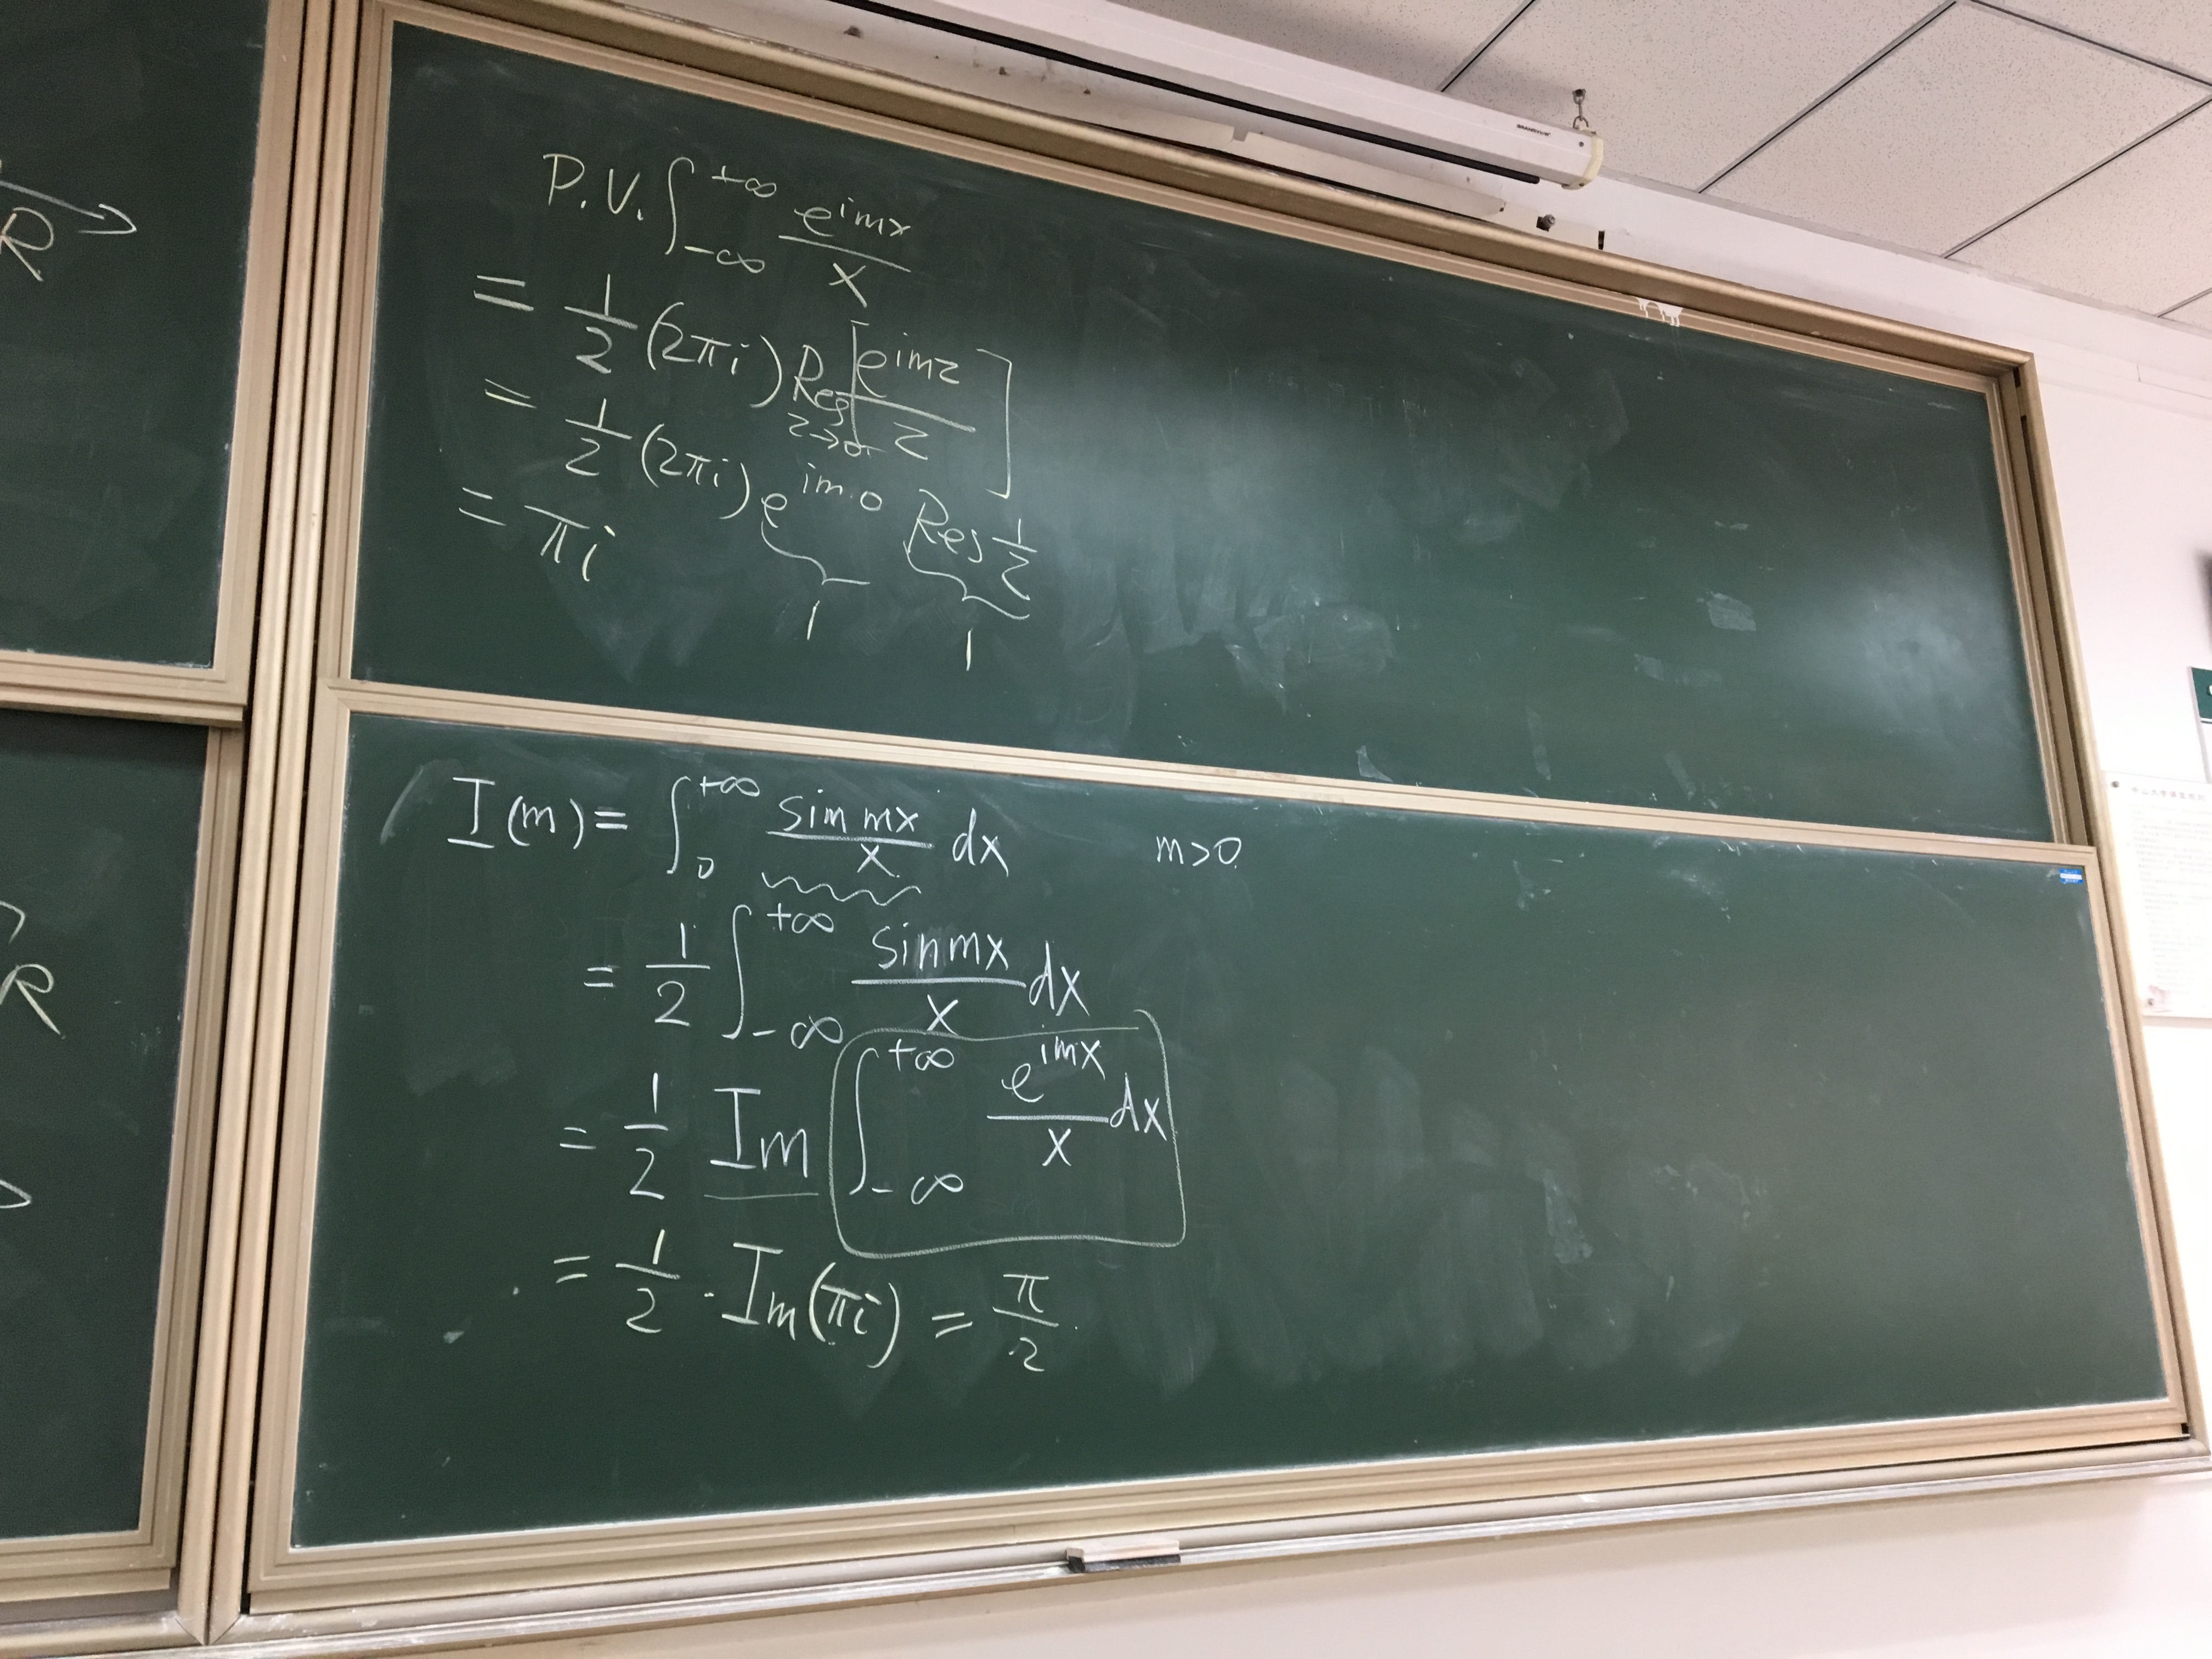 R
R
P.V. ∫_{-∞}^{+∞} e^{imx}/x
= 1/2 (2πi) Res_{z→0} [e^{imz}/z]
= 1/2 (2πi) e^{im·0} Res 1/z
= πi
1 1
I(m) = ∫_0^{+∞} sin mx/x dx m>0
= 1/2 ∫_{-∞}^{+∞} sin mx/x dx
= 1/2 Im ∫_{-∞}^{+∞} e^{imx}/x dx
= 1/2 · Im(πi) = π/2.